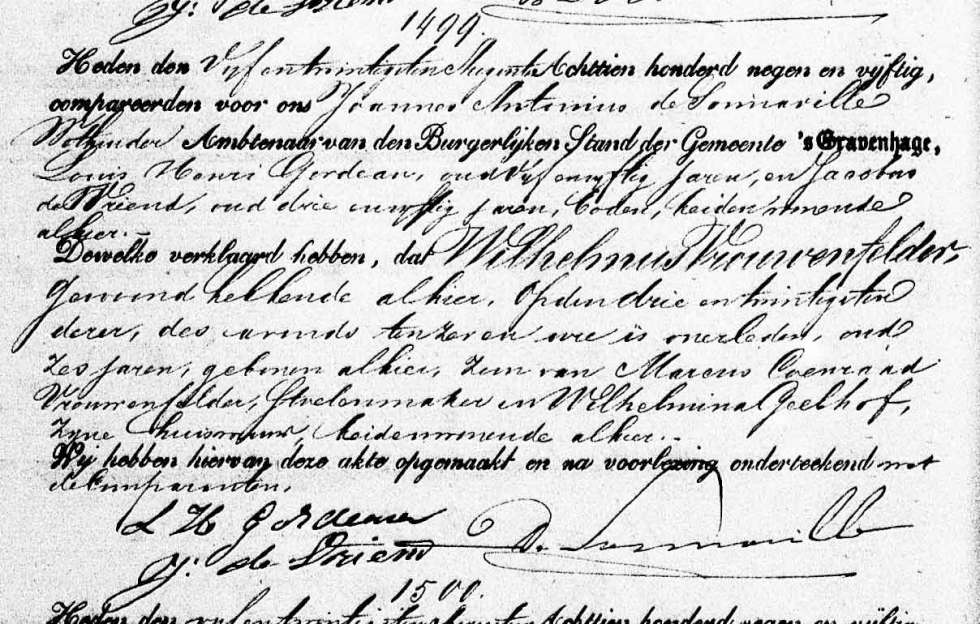 J: de Vriend
1499.
Heden den Vijf en twintigsten Augusts Achttien honderd negen en vijftig,
compareerden voor ons Joannes Antonius de Sonnaville
Wethouder Ambtenaar van den Burgerlijken Stand der Gemeente 's Gravenhage,
Louis Henri Gordeau, oud Vijf en vijftig jaren, en Jacobus
de Vriend, oud drie en vijftig jaren, boden, beiden wonende
alhier.–
Dewelke verklaard hebben, dat Wilhelmus Vrouwenfelder,
Gewoond hebbende alhier, op den drie en twintigsten
dezer, des avonds ten zeven ure is overleden, oud
Zes jaren, geboren alhier, Zoon van Marcus Coenraad
Vrouwenfelder, Stoelenmaker en Wilhelmina Geelhof,
Zyne huisvrouw, beiden wonende alhier..
Wij hebben hiervan deze akte opgemaakt en na voorlezing onderteekend met
de Comparanten,
L H Gordeau
D. Sonnaville
J: de Vriend
1500.
Heden den vijf en twintigsten Augustus Achttien honderd negen en vijftig